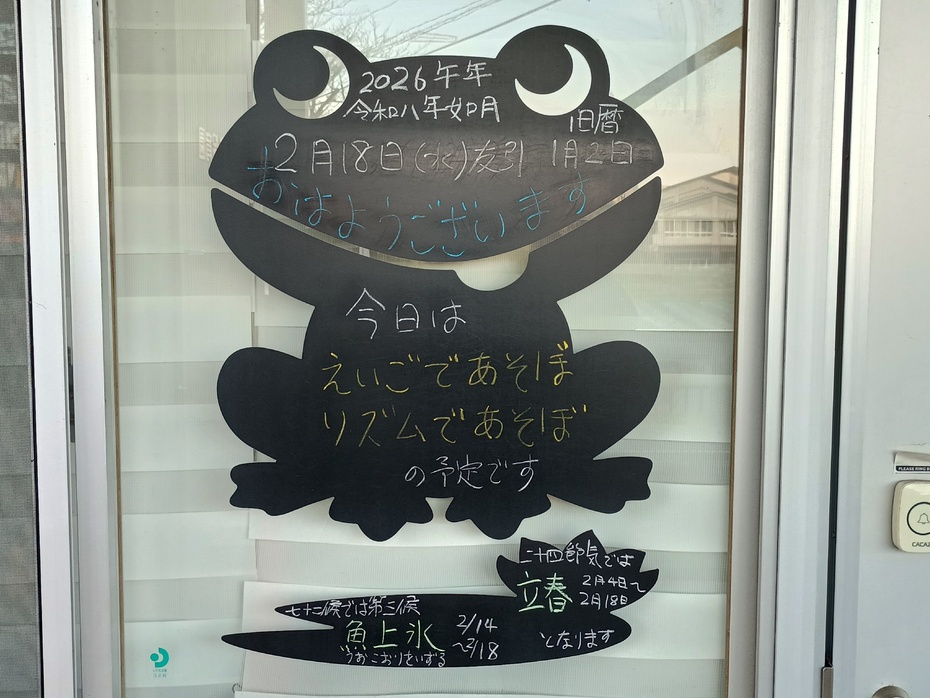 2026午年
令和八年如月
旧暦
2月18日(水)友引 1月2日
おはようございます
今日は
えいごであそぼ
リズムであそぼ
の予定です
二十四節気では
立春 2月4日〜
2月18日
七十二候では第三候
魚上氷 2/14
〜2/18
うおこおりをいずる
となります
PLEASE RING B